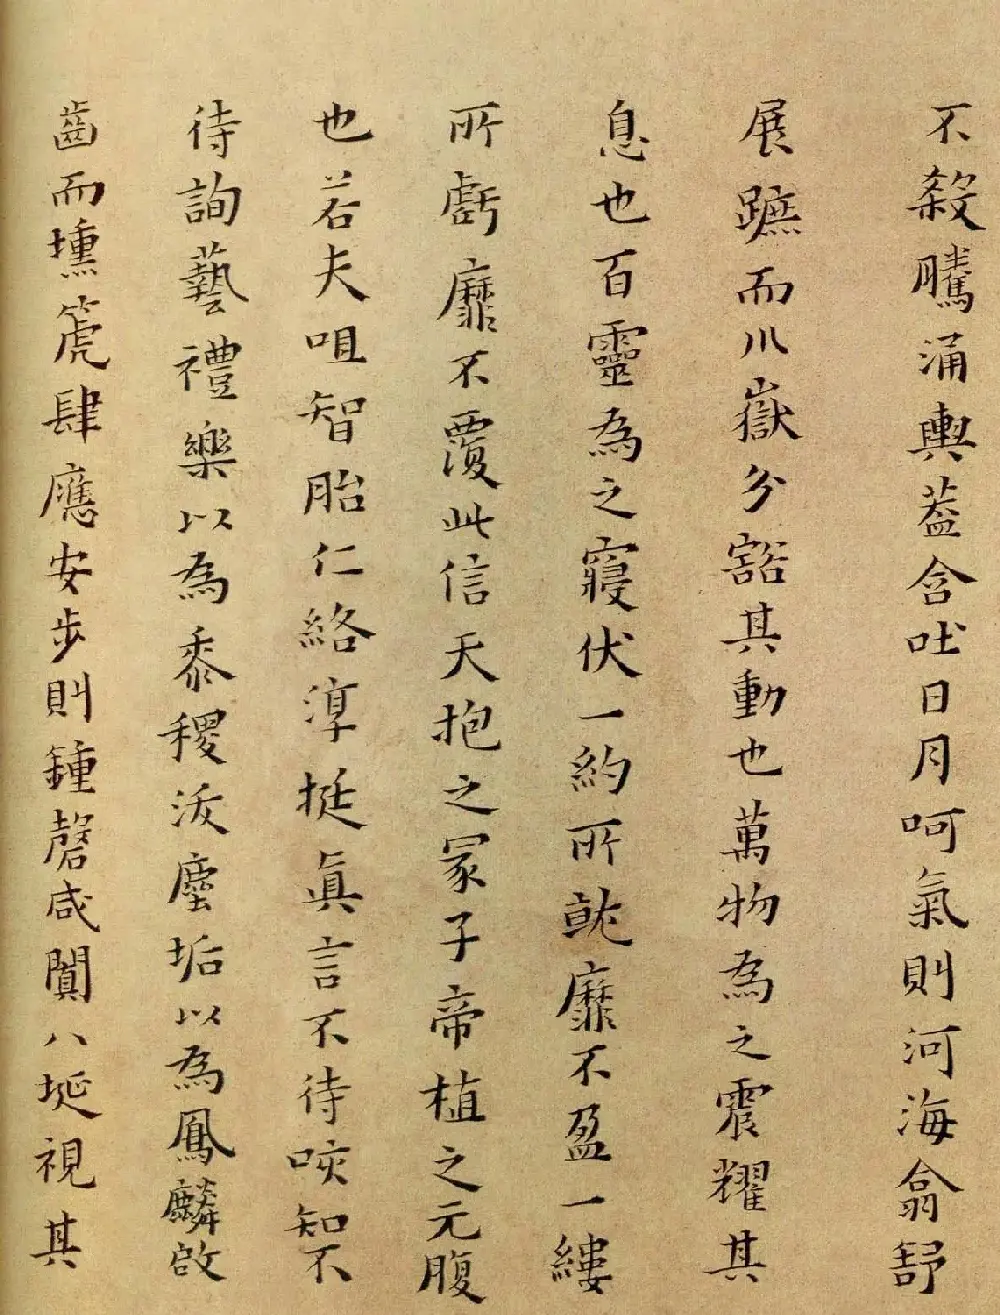 不殺騰涌輿蓋含吐日月呵氣則河海翕舒
展蹠而川嶽分豁其動也萬物為之震耀其
息也百靈為之寢伏一約所就靡不盈一縷
所虧靡不覆此信天抱之冢子帝植之元腹
也若夫咀智胎仁絡淳挺真言不待咳知不
待詢藝禮樂以為黍稷沃塵垢以為鳳麟啟
齒而壎篪肆應安步則鍾磬咸闐八埏視其